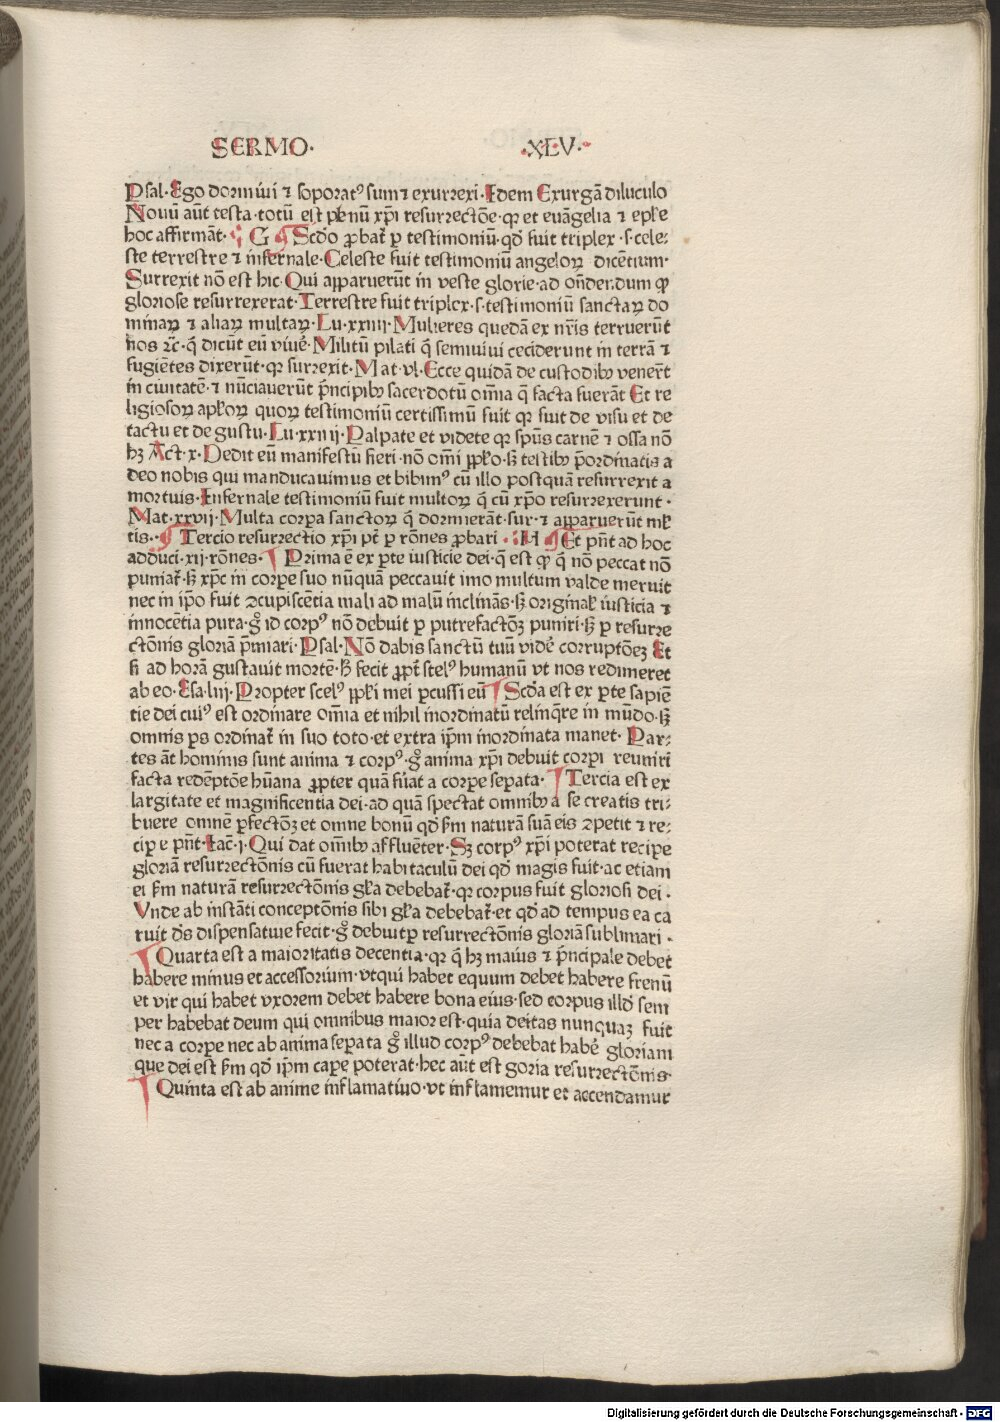 SERMO. .XLV.
Psal·Ego dormiui ⁊ soporatꝰ sum ⁊ exurrexi·Idem Exurgā diluculo
Nouū aūt testa·totū est plenū xp̄i resurrectōe·qꝛ et euāgelia ⁊ ep̄le
hoc affirmāt· G Scd̄o ꝓbat̄ ꝑ testimoniū·qd̄ fuit triplex·s·cele⸗
ste terrestre ⁊ infernale·Celeste fuit testimoniū angeloꝝ dicētium·
Surrexit nō est hic·Qui apparuerūt in veste glorie·ad on̄dendum ꝙ
gloriose resurrexerat·Terrestre fuit triplex·s·testimoniū sanctaꝝ do
minaꝝ ⁊ aliaꝝ multaꝝ·Lu·xxiiij·Mulieres quedā ex nr̄is terruerūt
nos ⁊c̄·q̄ dicūt eū viuē·Militū pilati q̄ semiuiui ceciderunt in terrā ⁊
fugiētes dixerūt·qꝛ surrexit·Mat·vl·Ecce quidā de custodibꝰ venerūt
in ciuitatē·⁊ nūciauerūt p̄ncipibꝰ sacerdotū om̄ia q̄ facta fuerāt Et re
ligiosoꝝ apl̄oꝝ quoꝝ testimoniū certissimū fuit qꝛ fuit de visu et de
tactu et de gustu·Lu·xxiiij·Palpate et videte qꝛ spūs carnē ⁊ ossa nō
hꝫ Act·x·Dedit eū manifestū fieri·nō om̄i ppl̄o·sꝫ testibꝰ p̄ordinatis a
deo nobis qui manducauimus et bibimꝰ cū illo postquā resurrexit a
mortuis·Infernale testimoniū fuit multoꝝ q̄ cū xp̄o resurrexerunt·
Mat·xxvij·Multa corpa sanctoꝝ q̄ dormierāt·sur·⁊ apparuerūt ml̄
tis· Tercio resurrectio xp̄i pt̄ ꝑ rōnes ꝓbari· H Et pn̄t ad hoc
adduci·xij·rōnes· Prima ē ex ꝑte iusticie dei·q̄ est ꝙ q̄ nō peccat nō
puniat̄·sꝫ xp̄c in corpe suo nūquā peccauit imo multum valde meruit
nec in ip̄o fuit ꝯcupiscētia mali ad malū inclināo·sꝫ original̄ iusticia ⁊
innocētia pura·gͦ id corpꝰ nō debuit ꝑ putrefactōꝫ puniri·sꝫ ꝑ resurre
ctōnis gloriā p̄miari·Psal·Nō dabis sanctū tuū vidē corruptōeꝫ Et
si ad horā gustauit mortē·hͦ fecit ꝓpt̄ scelꝰ humanū vt nos redimeret
ab eo·Esa·liij·Propter scelꝰ ppl̄i mei ꝑcussi eū Scd̄a est ex ꝑte sapiē
tie dei cuiꝰ est ordinare om̄ia et nihil inordinatū relinq̄re in mūdo·sꝫ
omnis ꝑs ordinat̄ in suo toto·et extra ip̄m inordinata manet·Par⸗
tes āt hominis sunt anima ⁊ corpꝰ·gͦ anima xp̄i debuit corpi reuniri
facta redēptōe hūana ꝓpter quā fuāt a corpe sepata· Tercia est ex
largitate et magnificentia dei·ad quā spectat omnibꝰ a se creatis tri⸗
buere omnē ꝑfectōꝫ et omne bonū qd̄ ẜm naturā suā eis ꝯpetit ⁊ re⸗
cipe pn̄t·Iac̄·j·Qui dat om̄ibꝰ affluēter·Sꝫ corpꝰ xp̄i poterat recipe
gloriā resurrectōnis cū fuerat habitaculū dei qd̄ magis fuit·ac etiam
ei ẜm naturā resurrectōnis gl̄ia debebat̄·qꝛ corpus fuit gloriosi dei·
Vnde ab instāti conceptōnis sibi gl̄ia debebat̄·et qd̄ ad tempus ea ca
ruit dn̄s dispensatiue fecit·gͦ debuit ꝑ resurrectōnis gloriā sublimari·
Quarta est a maioritatis decentia·qꝛ q̄ hꝫ maius ⁊ p̄ncipale debet
habere minus et accessorium·vt qui habet equum debet habere frenū
et vir qui habet vxorem debet habere bona eius·sed corpus illd̄ sem
per habebat deum qui omnibus maior est·quia deitas nunquaꝫ fuit
nec a corpe nec ab anima sepata gͦ illud corpꝰ debebat habē gloriam
que dei est ẜm qd̄ ip̄m cape poterat·hec aūt est goria resurrectōnis·
Quinta est ab anime inflamatiuo·vt inflamemur et accendamur
Digitalisierung gefördert durch die Deutsche Forschungsgemeinschaft - DFG